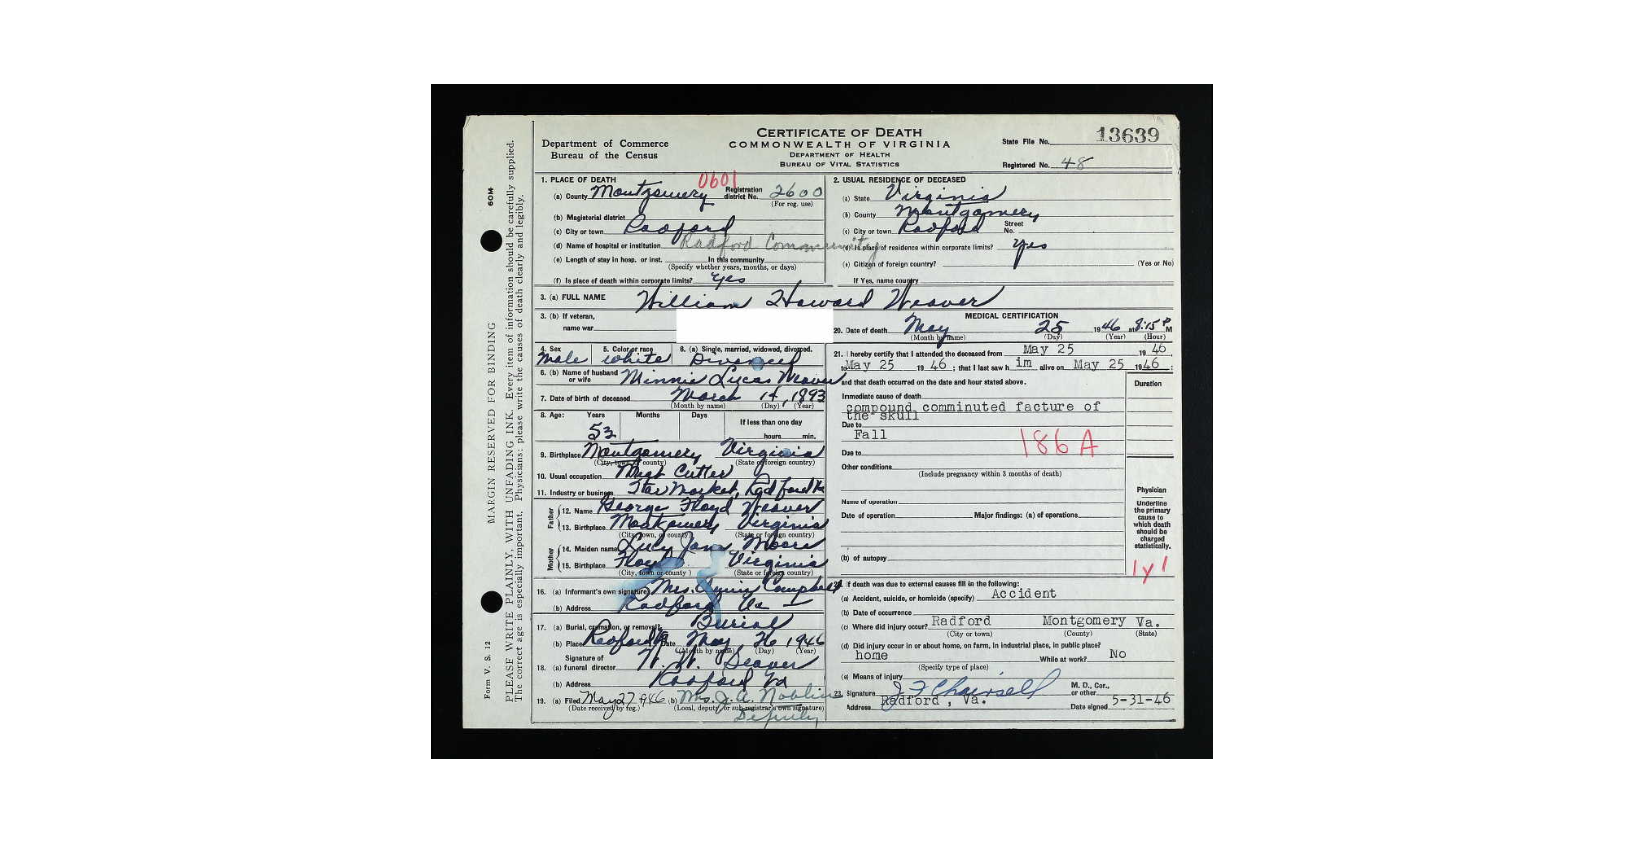 CERTIFICATE OF DEATH
COMMONWEALTH OF VIRGINIA
DEPARTMENT OF HEALTH
BUREAU OF VITAL STATISTICS
Department of Commerce
Bureau of the Census
State File No. 13639
Registered No. 48
MARGIN RESERVED FOR BINDING
60M
Form V. S. 12
PLEASE WRITE PLAINLY, WITH UNFADING INK. Every item of information should be carefully supplied.
The correct age is especially important. Physicians: please write the causes of death clearly and legibly.
1. PLACE OF DEATH
0601
(a) County Montgomery Registration district No. 2600
(For reg. use)
(b) Magisterial district
(c) City or town Radford
(d) Name of hospital or institution Radford Community
(e) Length of stay in hosp. or inst. In this community
(Specify whether years, months, or days)
(f) Is place of death within corporate limits? Yes
2. USUAL RESIDENCE OF DECEASED
(a) State Virginia
(b) County Montgomery
(c) City or town Radford Street No.
(d) Is place of residence within corporate limits? Yes
(e) Citizen of foreign country? (Yes or No)
If Yes, name country
3. (a) FULL NAME William Howard Weaver
3. (b) If veteran,
name war
4. Sex 5. Color or race 6. (a) Single, married, widowed, divorced.
Male White Divorced
6. (b) Name of husband or wife Minnie Lucas Weaver
7. Date of birth of deceased March 14, 1893
(Month by name) (Day) (Year)
8. Age: Years Months Days If less than one day
53 hours min.
9. Birthplace Montgomery Virginia
(City, town, or county) (State or foreign country)
10. Usual occupation Meat Cutter
11. Industry or business Star Market, Radford Va
Father
12. Name George Floyd Weaver
13. Birthplace Montgomery Virginia
(City, town, or county) (State or foreign country)
Mother
14. Maiden name Lucy Jane Moore
15. Birthplace Floyd Virginia
(City, town or county) (State or foreign country)
16. (a) Informant's own signature Mrs. Campbell
(b) Address Radford Va
17. (a) Burial, cremation, or removal Burial
(b) Place Radford Va Date May 26 1946
(Month by name) (Day) (Year)
Signature of
18. (a) funeral director
(b) Address Radford Va
19. (a) Filed May 27 1946 (b) Mrs. J. A. Noblin
(Date received by reg.) (Local, deputy or sub-registrar's own signature)
Deputy
MEDICAL CERTIFICATION
20. Date of death May 25 1946 at 8:15 P M
(Month by name) (Day) (Year) (Hour)
21. I hereby certify that I attended the deceased from May 25 19 46
to May 25 19 46; that I last saw h im alive on May 25 1946;
and that death occurred on the date and hour stated above.
Duration
Immediate cause of death
compound comminuted facture of
the skull
Due to
Fall
186 A
Due to
Other conditions
(Include pregnancy within 3 months of death)
Name of operation
Date of operation Major findings: (a) of operations
(b) of autopsy
Physician
Underline
the primary
cause to
which death
should be
charged
statistically.
1y1
22. If death was due to external causes fill in the following:
(a) Accident, suicide, or homicide (specify) Accident
(b) Date of occurrence
(c) Where did injury occur? Radford Montgomery Va.
(City or town) (County) (State)
(d) Did injury occur in or about home, on farm, in industrial place, in public place?
home While at work? No
(Specify type of place)
(e) Means of injury
23. Signature J F M. D., Cor., or other
Address Radford, Va. Date signed 5-31-46